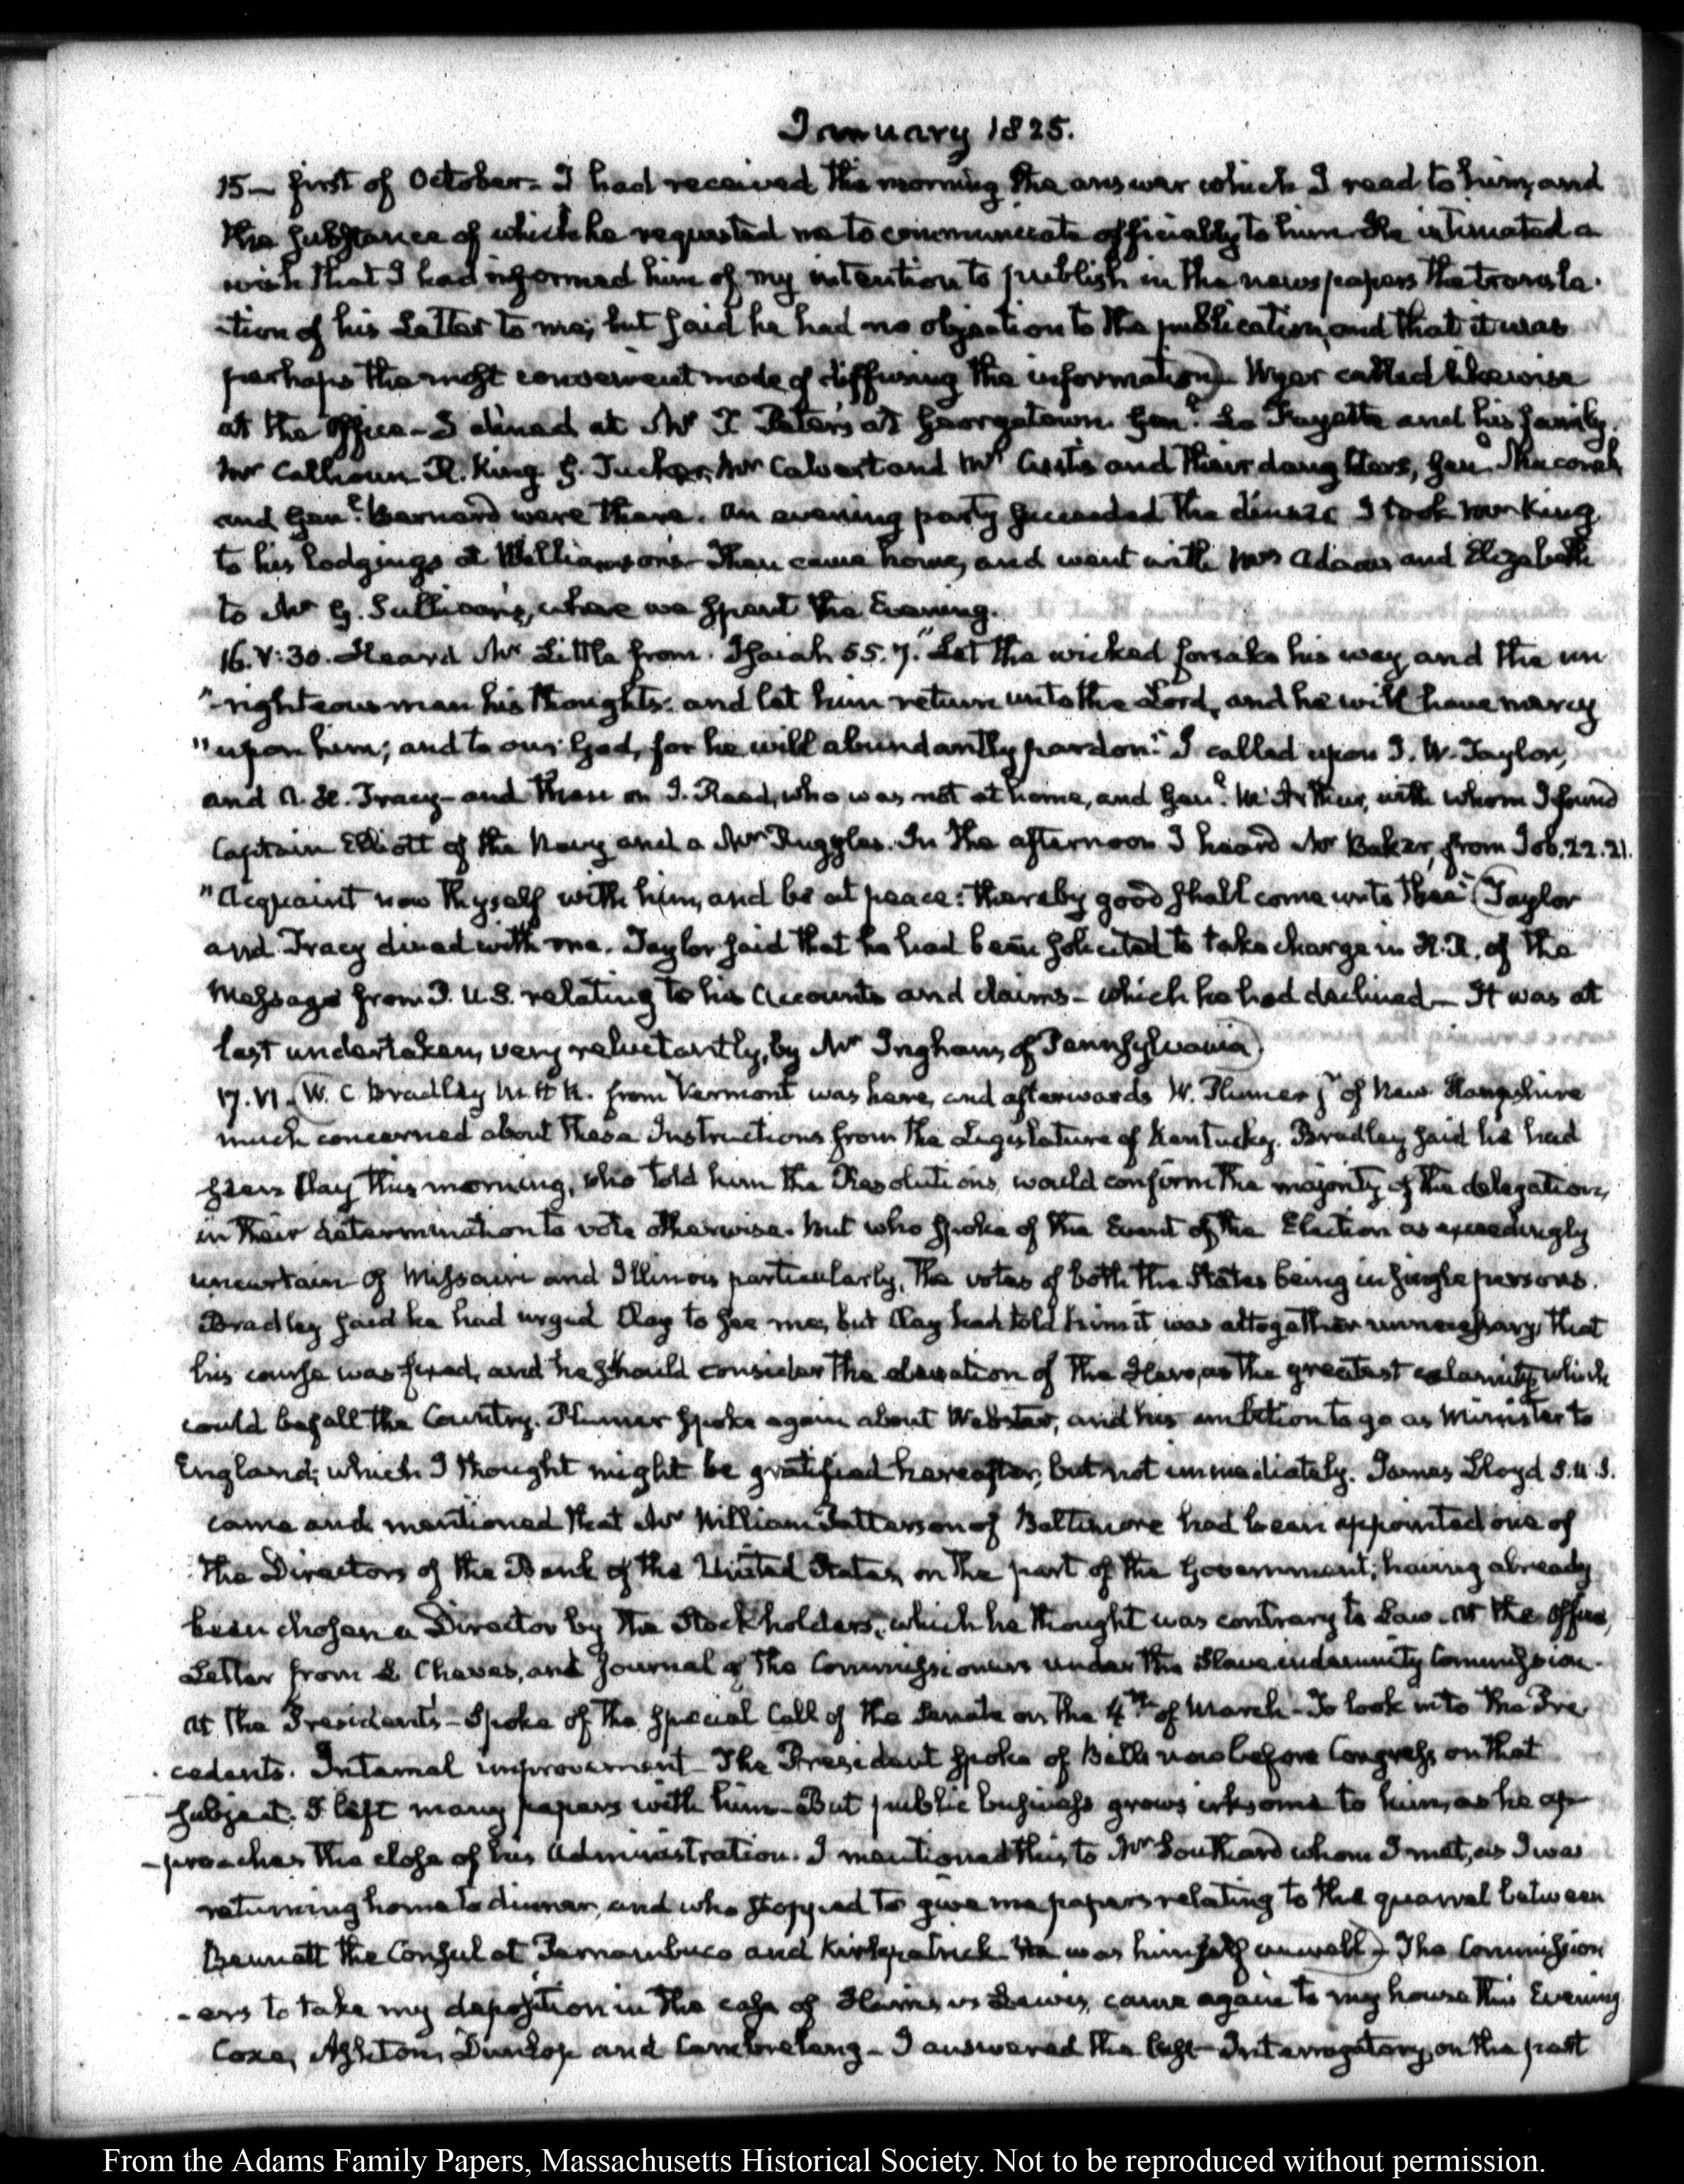 January 1825.
15— first of October. I had received this morning the answer which I read to him, and
the substance of which he requested me to communicate officially to him. He intimated a
wish that I had informed him of my intention to publish in the newspapers the transla-
-tion of his Letter to me; but said he had no objection to the publication, and that it was
perhaps the most convenient mode of diffusing the information) Wyer called likewise
at the Office— I dined at Mr T. Peter's at Georgetown. Genl. La Fayette and his family.
Mr Calhoun R. King G. Tucker, Mr Calvert and Mr Custis and their daughters, Genl. Macomb
and Genl. Bernard were there. An evening party succeeded the dinner I took Mr King
to his lodgings at Williamson's— Then came home, and went with Mrs Adams and Elizabeth
to Mr G. Sullivan's, where we spent the Evening.
16. V:30. Heard Mr Little from. Isaiah 55.7. "Let the wicked forsake his way and the un
"righteous man his thoughts: and let him return unto the Lord, and he will have mercy
"upon him; and to our God, for he will abundantly pardon." I called upon J. W. Taylor,
and A. H. Tracy— and then on J. Reed, who was not at home, and Genl. McArthur, with whom I found
Captain Elliott of the Navy and a Mr Ruggles. In the afternoon I heard Mr Baker, from Job. 22.21.
"Acquaint now thyself with him, and be at peace: thereby good shall come unto thee" (Taylor
and Tracy dined with me. Taylor said that he had been solicited to take charge in H.R. of the
Message from P. U.S. relating to his Accounts and claims— which he had declined— It was at
last undertaken, very reluctantly, by Mr Ingham, of Pennsylvania)
17. VI. (W. C. Bradley M.H.R. from Vermont was here, and afterwards W. Plumer jr of New Hampshire
much concerned about these Instructions from the Legislature of Kentucky. Bradley said he had
seen Clay this morning, who told him the Resolutions, would confirm the majority of the delegation,
in their determination to vote otherwise. But who spoke of the Event of the Election as exceedingly
uncertain of Missouri and Illinois particularly, the votes of both the States being in single persons.
Bradley said he had urged Clay to see me, but Clay had told him it was altogether unnecessary; that
his course was fixed, and he should consider the elevation of the Hero, as the greatest calamity which
could befall the Country. Plumer spoke again about Webster, and his ambition to go as Minister to
England; which I thought might be gratified hereafter, but not immediately. James Lloyd S.U.S.
came and mentioned that Mr William Patterson of Baltimore had been appointed one of
the Directors of the Bank of the United States, on the part of the Government; having already
been chosen a Director by the Stockholders, which he thought was contrary to Law. At the Office,
Letter from L Cheves, and Journal of the Commissioners under the Slave indemnity Commission.
At the President's— Spoke of the special Call of the Senate on the 4th of March— To look into the Pre
cedents. Internal improvement— The President spoke of Bills now before Congress, on that
subject. I left many papers with him— But public business grows irksome to him, as he ap
-proaches the close of his Administration. I mentioned this to Mr Southard whom I met, as I was
returning home to dinner, and who stopped to give me papers relating to the quarrel between
Bennett the Consul at Pernambuco and Kirkpatrick He was himself unwell)— The Commission
-ers to take my deposition in the case of Harris vs Lewis, came again to my house this Evening
Coxe, Ashton, Dunlop and Cambreleng— I answered the last Interrogatory, on the part
From the Adams Family Papers, Massachusetts Historical Society. Not to be reproduced without permission.